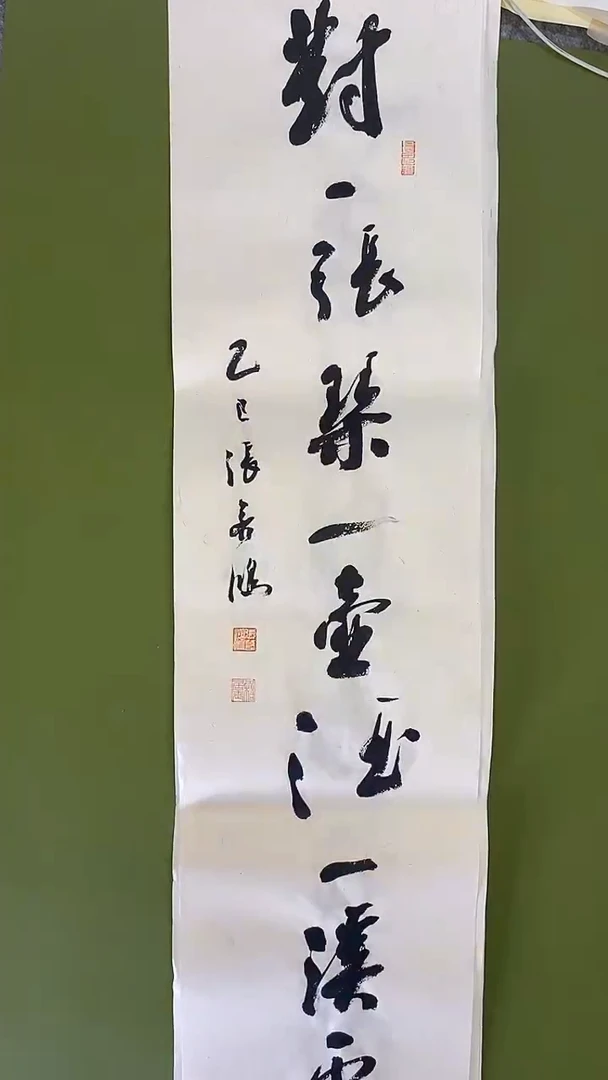 對一張琴一壺酒一溪雲
乙巳張